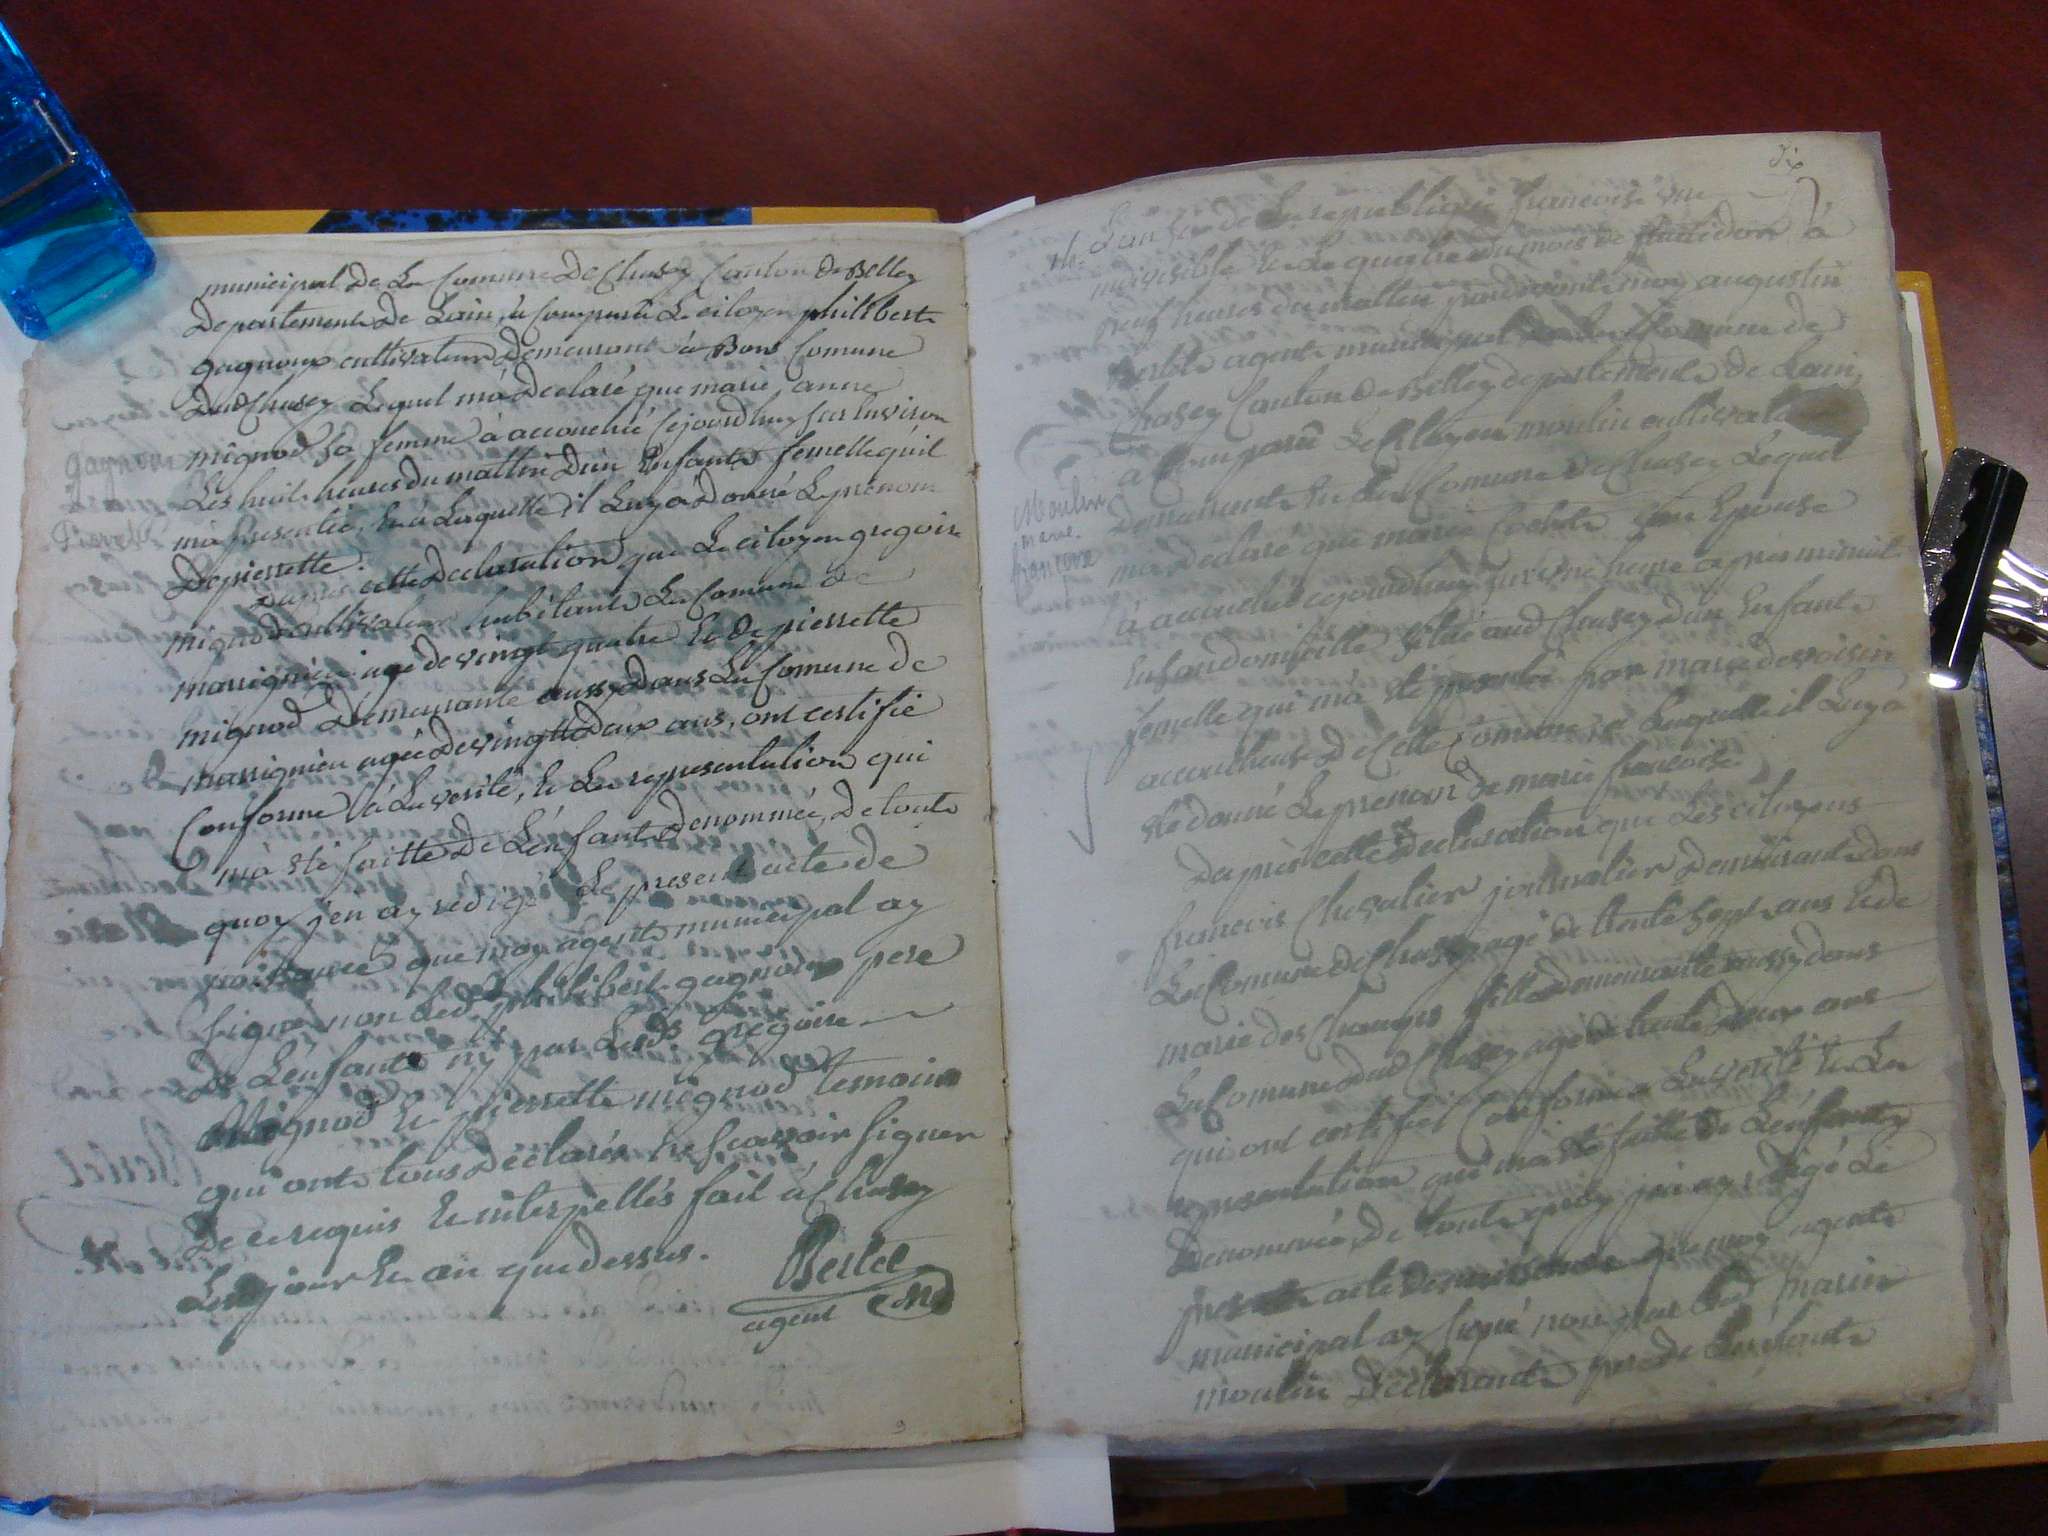 municipal de La Comune de Chasey Canton de Belley
departement de Lain, à Comparu Le citoyen philibert
gagnoux cultivateur demeurant à Bons Comune
dud Chasey Lequel ma declaré que marie anne
mignod sa femme à accouchée cejourdhuy sur Lenviron
Les huit heures du mattin d'un Enfant femelle quil
mà presenté, Et à Laquelle il Luy à donné Le prenom
de pierrette.
Dapres cette declaration que Le citoyen gregoire
mignod cultivateur habitant La Comune de
massignieu agé de vingt quatre Et de pierrette
mignod demeurante aussy dans La Comune de
massignieu agée de vingtt deux ans, ont certifié
Conforme à La verité, Et La representation qui
mà été faitte de L'énfant denommée, de toute
quoy j'en ay redigé Le present acte de
naissance que moy agent municipal ay
signé non Led philibert gagnoux pere
de L'énfant ny par Lesds gregoire
Mignod Et pierrette mignod temoins
qui ont tous declarés ne scavoir signer
de ce requis Et interpellés fait à Chasey
Les jour Et an que dessus.
Bertet
agent
gagnoux
Pierrette
9
dix
L'an six de La republique francoise une
indivisible Et Le quatre du mois de fructidor à
neuf heures du mattin pardevant moy augustin
Bertet agent municipal de La Comune de
Chasey Canton de Belley departement de Lain,
à Comparu Le Citoyen moulin cultivateur
demeurant En La Comune de Chasey Lequel
ma declaré que marie son Epouse
à accouchée cejourdhuy sur une heure apres minuit
En son domicille situé aud Chasey d'un Enfant
femelle qui mà été presenté par marie devoisin
accoucheuse de Cette Comune, à Laquelle il Luy à
été donné Le prenom de marie francoise
Moulin
marie
francoise
Dapres cette declaration que Les citoyens
francois Chevalier journalier demeurant dans
La Comune de Chasey agé de trente sept ans Et de
marie des Champs fille demeurante aussy dans
La Comune dud Chasey agé de trente deux ans
qui ont certifiés Conforme à La verité Et La
representation qui mà été faitte de L'énfant
denommée, de toute quoy jen ay redigé Le
present acte de naissance que moy agent
municipal ay signé non par Led marin
moulin declarant pere de L'énfant